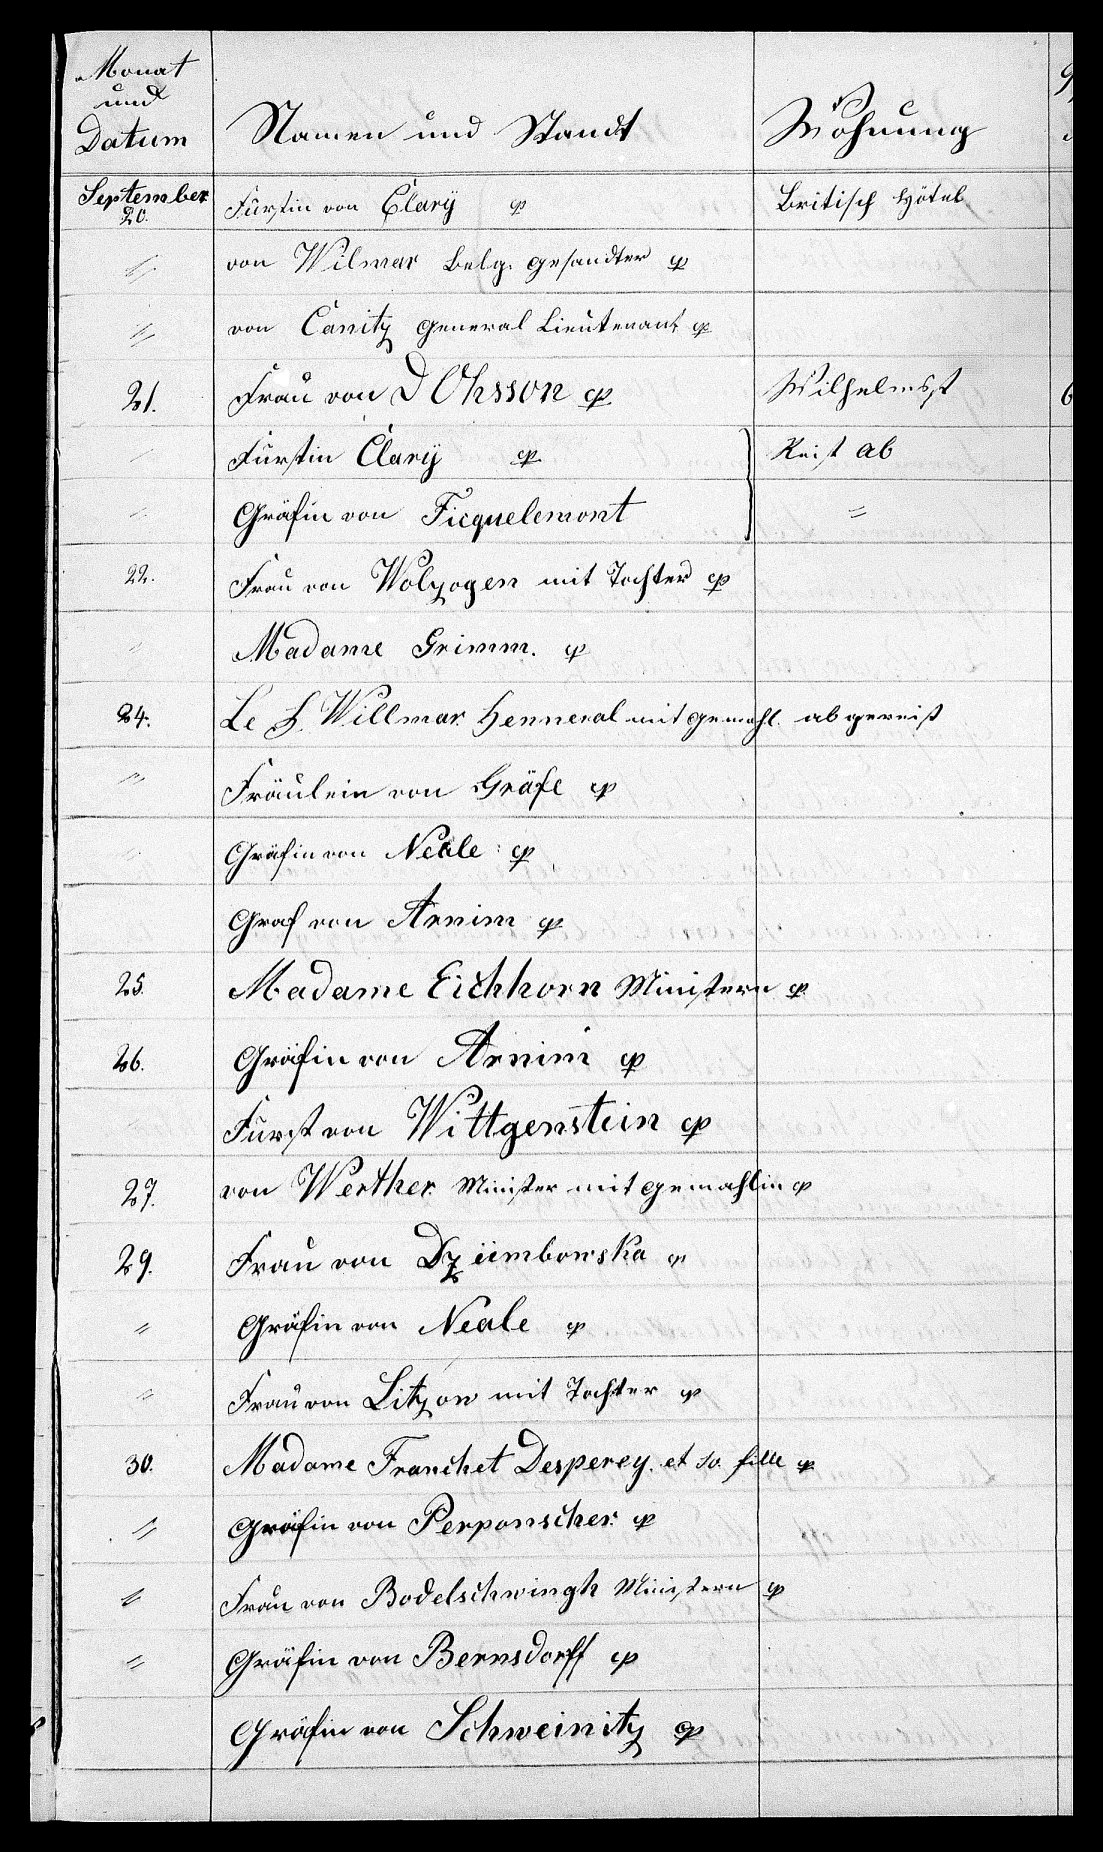 Monat
und
Datum
Namen und Standt
Wohnung
September
20. Fürstin von Clarÿ p Britisch Hôtel
" von Wilmar belg. gesandter p
" von Canitz general Lieutenant p
21. Frau von D Ohsson p Wilhelmsst
" Fürstin Clarÿ p Reist ab
" Gräfin von Ficquelemont "
22. Frau von Wolzogen mit Tochter p
" Madame Grimm. p
24. Le g. Willmar henneral mit gemahl. abgereist
" Fräulein von Gräfe p
" Gräfin von Neale p
Graf von Arnim p
25. Madame Eichhorn Ministern p
26. Gräfin von Arnim p
Fürst von Wittgenstein p
27. von Werther Minister mit gemahlin p
29. Frau von Dziimbowska p
" Gräfin von Neale p
" Frau von Litzow mit Tochter p
30. Madame Franchet Desperey. et sa fille p
" Gräfin von Perponscher. p
" Frau von Bodelschwingh Ministern p
" Gräfin von Bernsdorff p
Gräfin von Schweinitz p